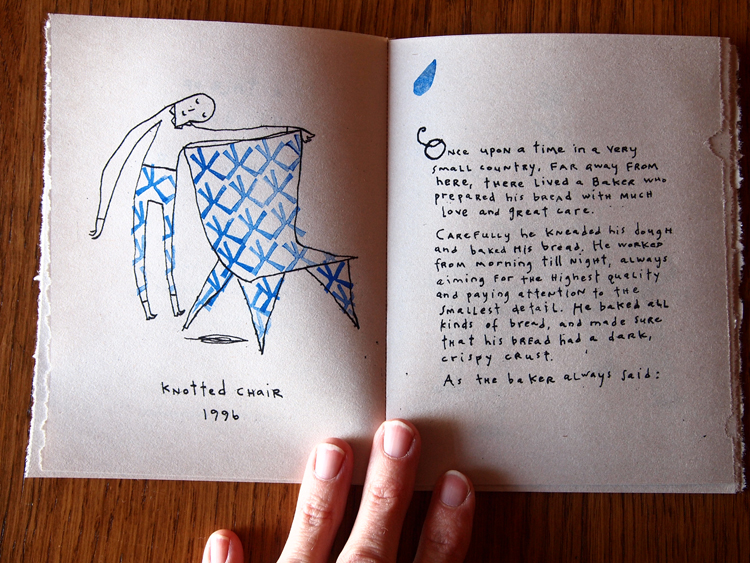 Knotted chair
1996
Once upon a time in a very
small country, far away from
here, there lived a Baker who
prepared his bread with much
love and great care.
Carefully he kneaded his dough
and baked his bread. He worked
from morning till night, always
aiming for the highest quality
and paying attention to the
smallest detail. He baked all
kinds of bread, and made sure
that his bread had a dark,
crispy crust.
As the baker always said: